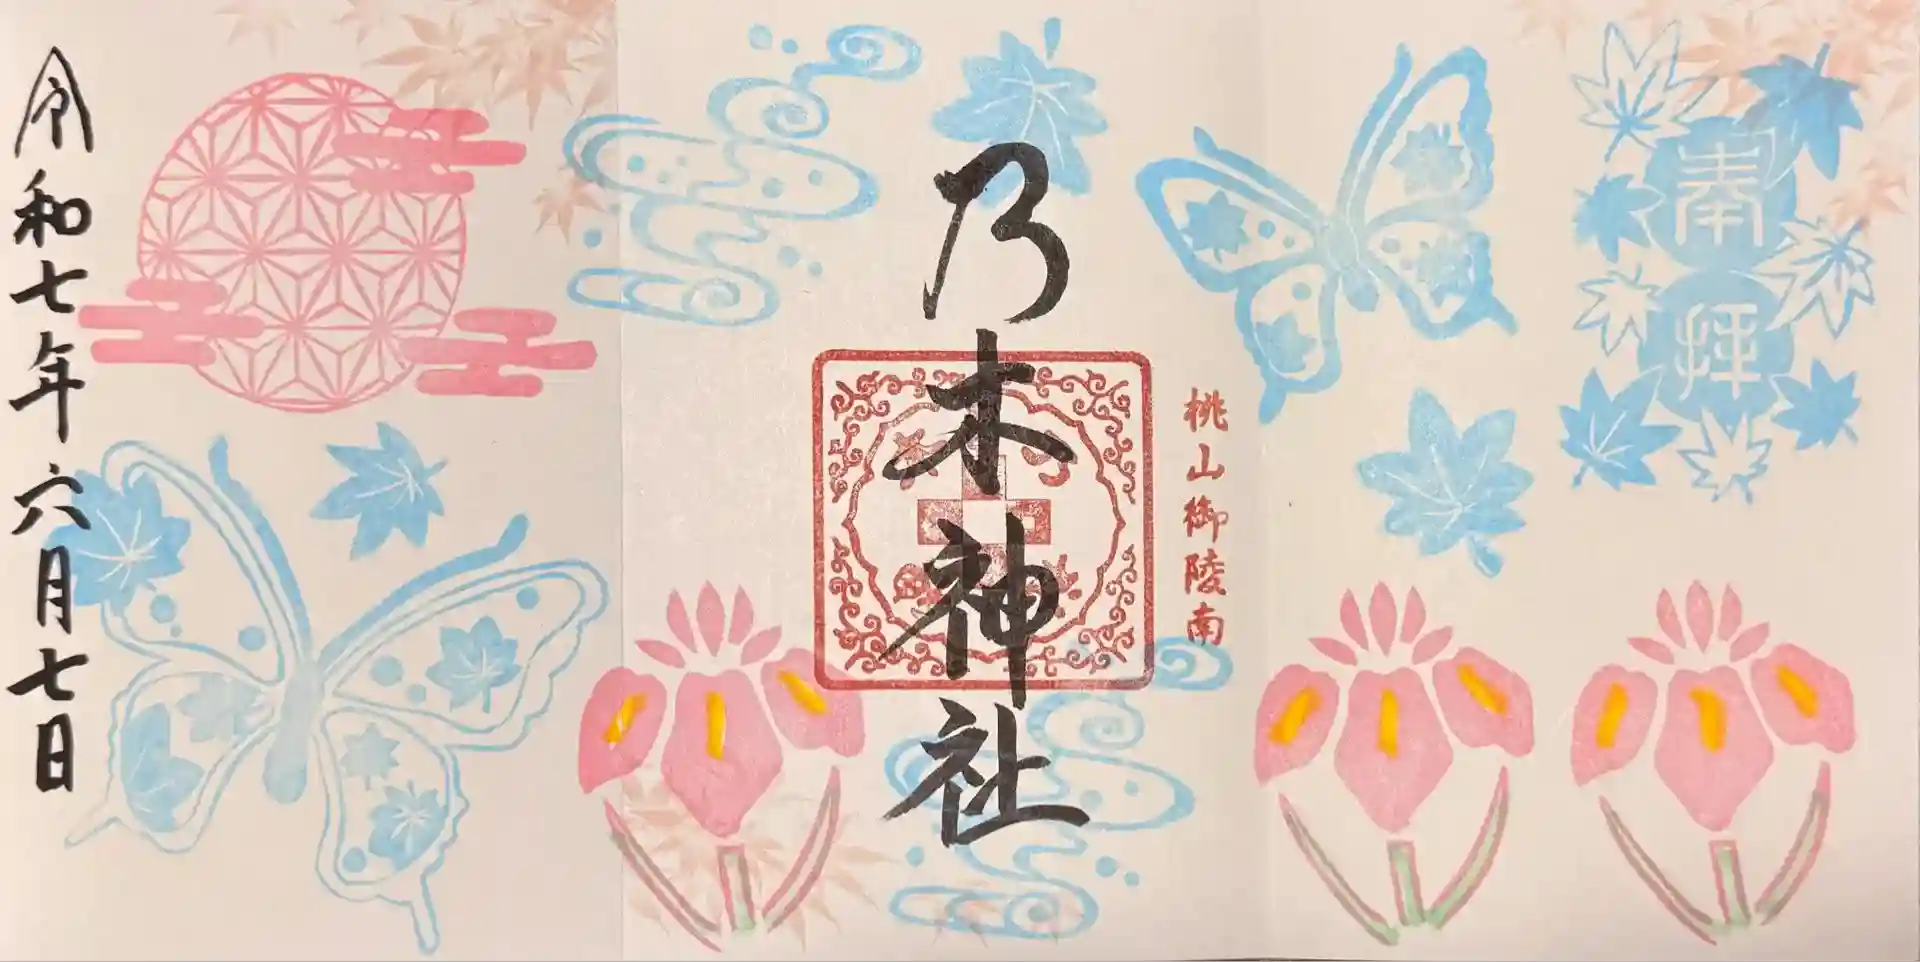 奉拝
桃山御陵南
乃木神社
令和七年六月七日